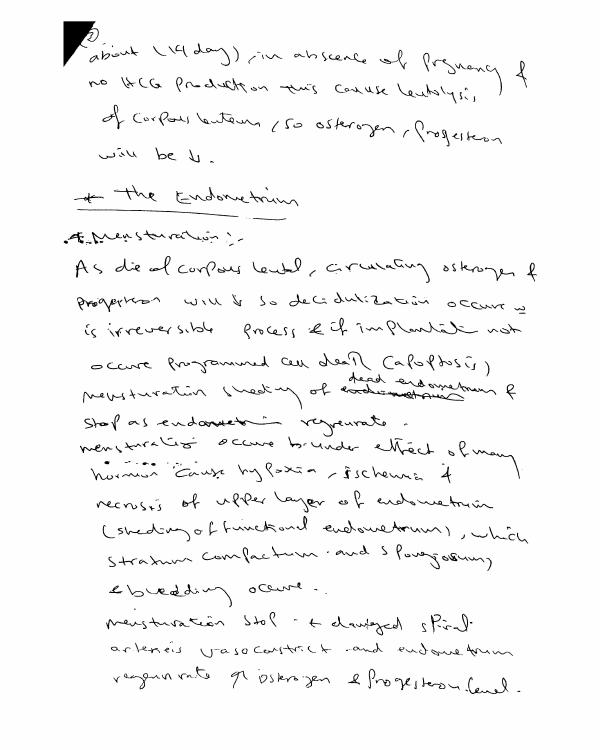 2
about (14 day), in abscence of Prgnancy &
no HCG Production this cause leutolysis
of corpous leuteum, so osterogen, Progesteron
will be ↓.
* The Endometrium
* Mensturation :-
As die of corpous leutal, circulating osterogen &
Progesteron will ↓ so decidulization occure
is irreversible process & if implantati not
occure Programmed cell death (apoptosis)
mensturation sheding of dead endometrium &
Stop as endometri regeurate.
menstruatio occure b under effect of many
hormon cause hypoxia, ischemia &
necrosis of upper layer of endometrium
(sheding of functional endometrum), which
stratum compactum and spongiosum,
& bleedding ocure.
mensturation stop & damaged spiral
arterieis vasoconstrict and endometrum
regeunrate osterogen & Progesteron level.